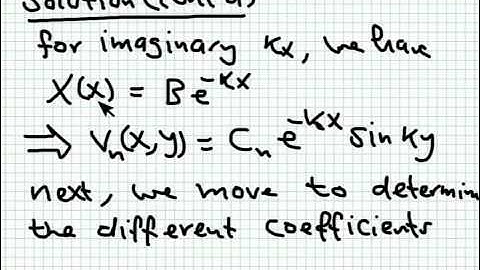 Solution (cont'd)
for imaginary kx, we have
X(x) = B e^{-kx}
⇒ V_n(x,y) = C_n e^{-kx} sin ky
next, we move to determin
the different coefficients